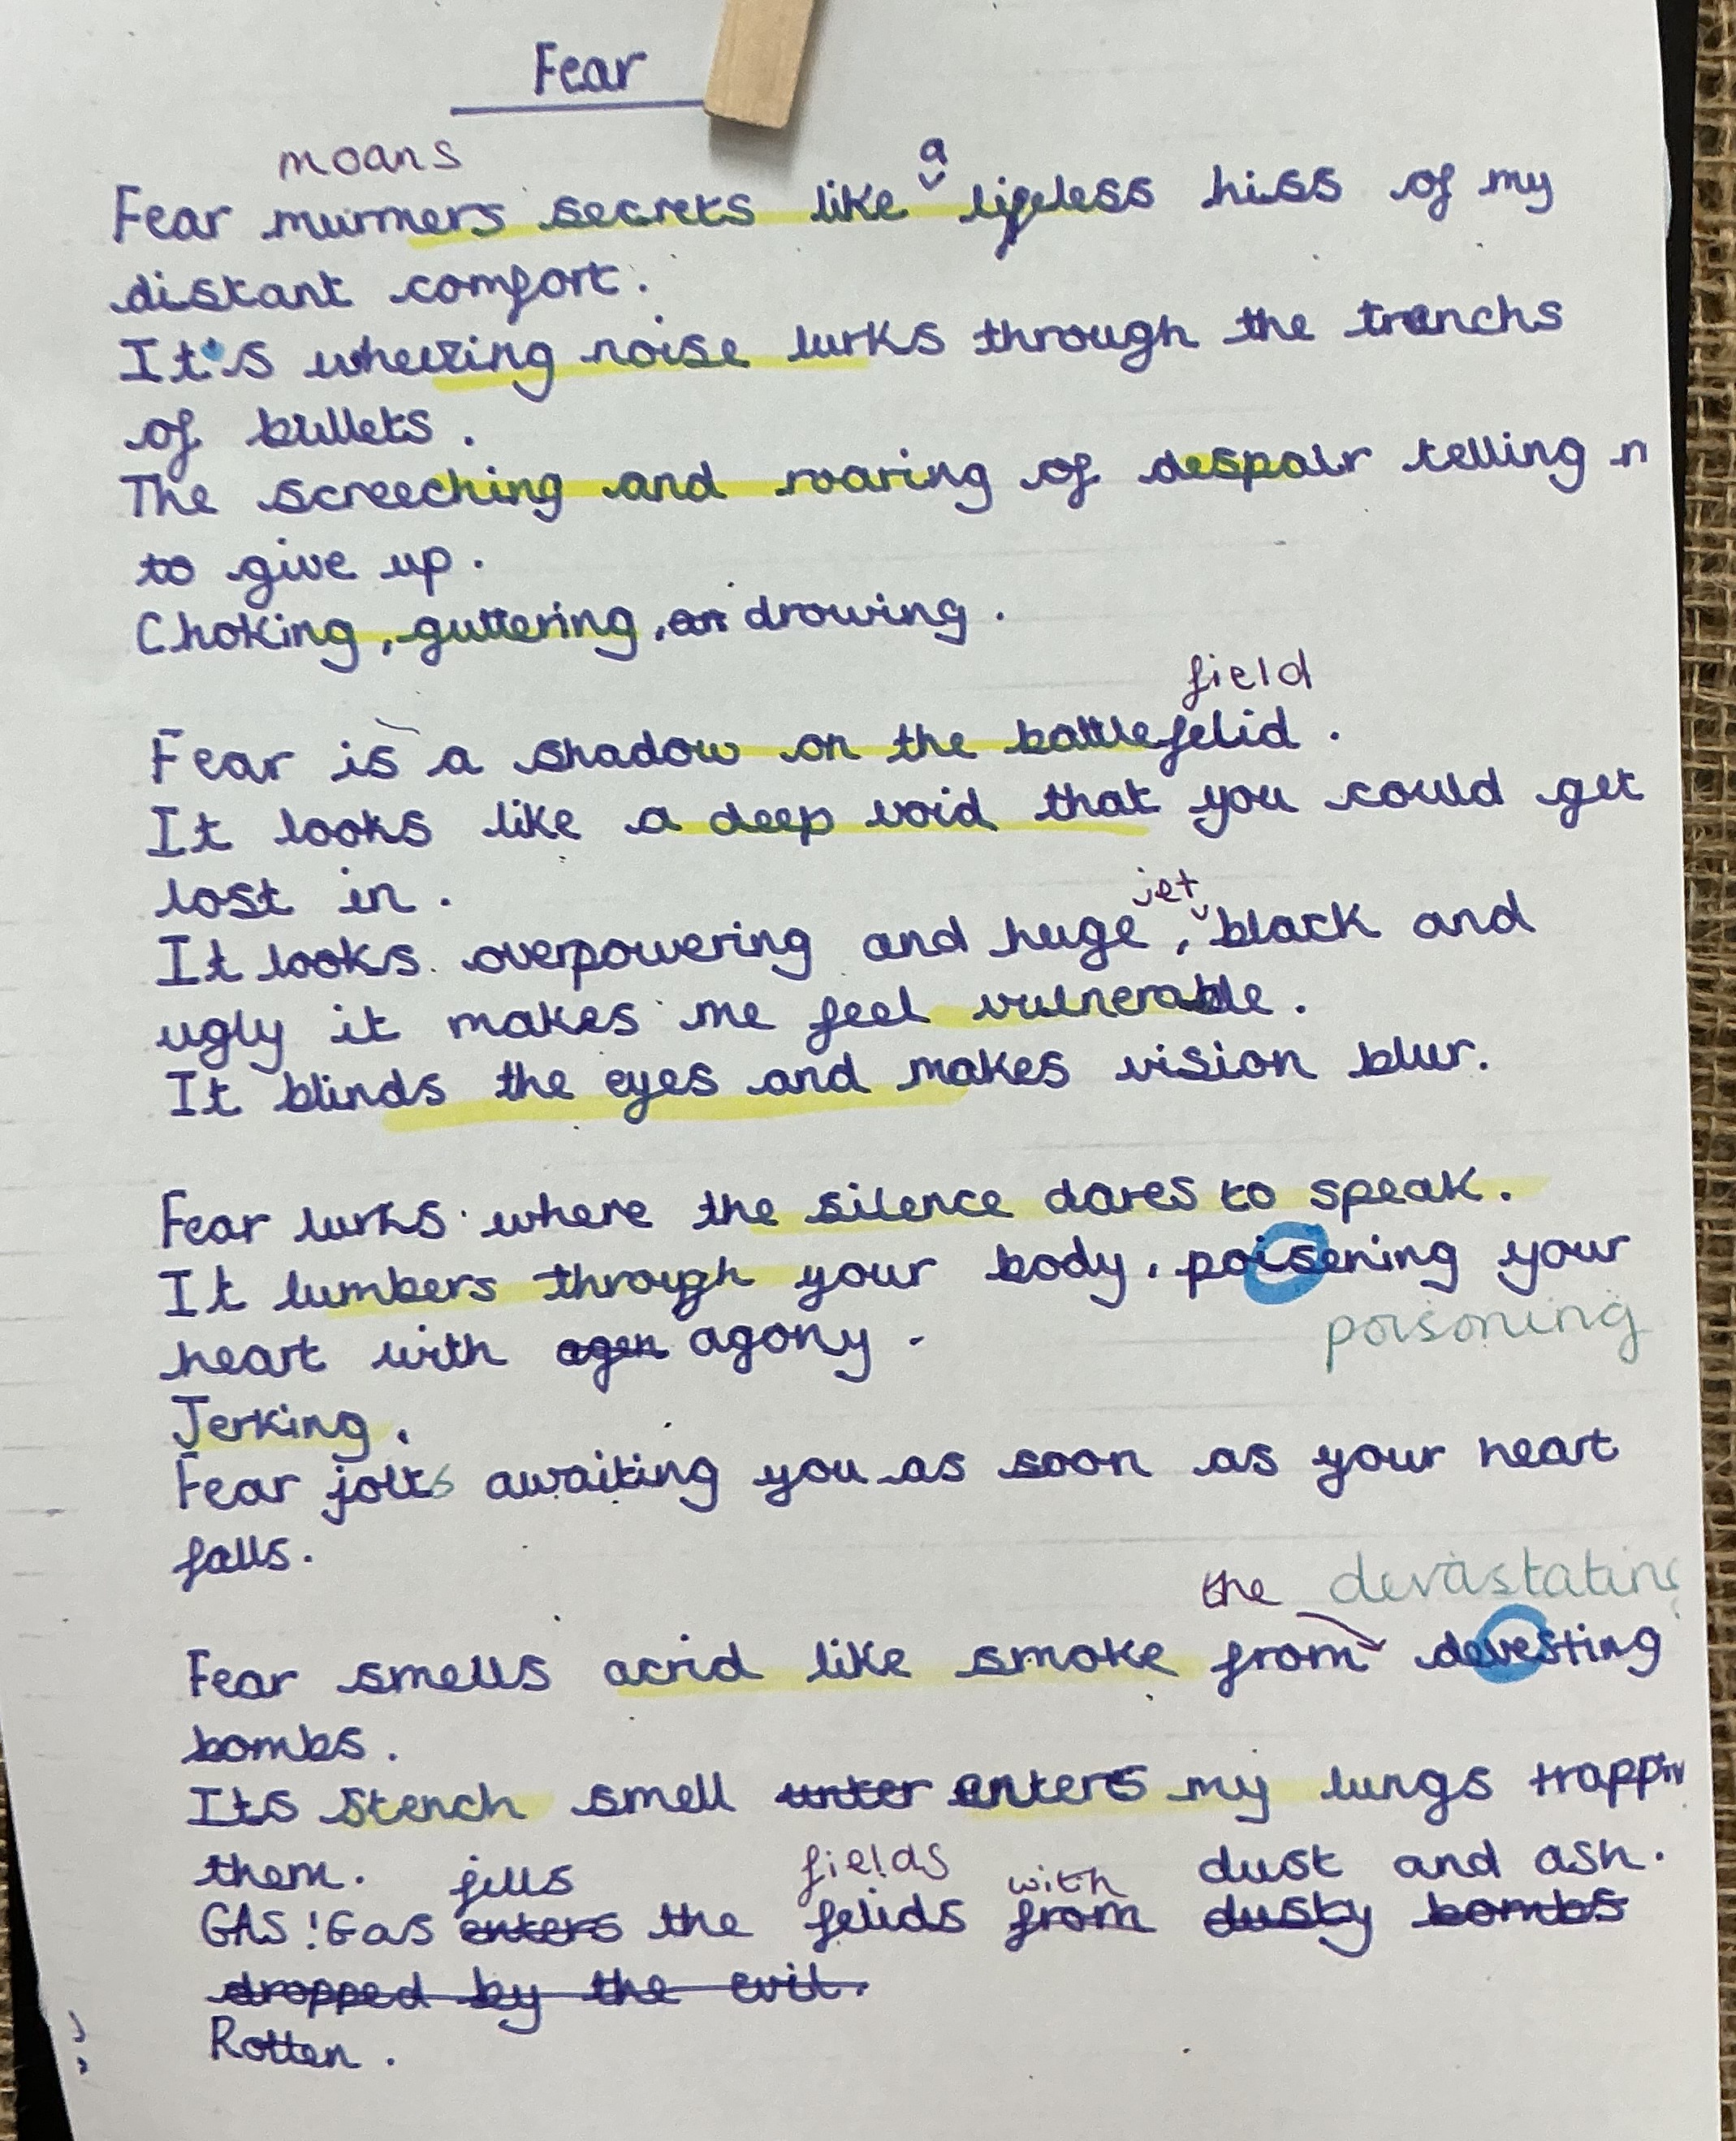 Fear
moans
a
Fear murmers secrets like lifeless hiss of my
distant comfort.
It's wheezing noise lurks through the trenchs
of bullets.
The screeching and roaring of despair telling
to give up.
Choking, guttering, or drowing.
field
Fear is a shadow on the battlefelid.
It looks like a deep void that you could get
lost in.
jet
It looks overpowering and huge, black and
ugly it makes me feel vulnerable.
It blinds the eyes and makes vision blur.
Fear lurks where the silence dares to speak.
It lumbers through your body, poisening your
poisoning
heart with agen agony.
Jerking.
Fear jolts awaiting you as soon as your heart
falls.
the devastating
Fear smells acrid like smoke from devesting
bombs.
Its stench smell enters my lungs trappin
them. fills fields with dust and ash.
GAS! Gas enters the felids from dusty bombs
dropped by the evil.
Rotten.